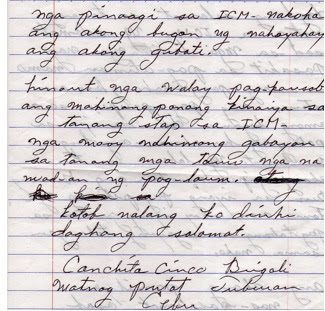 nga pinaagi sa ICM- nakoha
ang akong bugon ug nahayahay
ang akong gibati.
hinaut nga walay pag-pausab
ang mahinung panang kinaiya sa
tanang stap sa ICM-
nga maoy nahimong gabayan
sa tanang mga tawo nga na
wad-an ug pag-laum.
kotob nalang ko dinhi
daghang salamat.
Canchita Cinco Digali
Watnog prutat Tuburan
Cebu